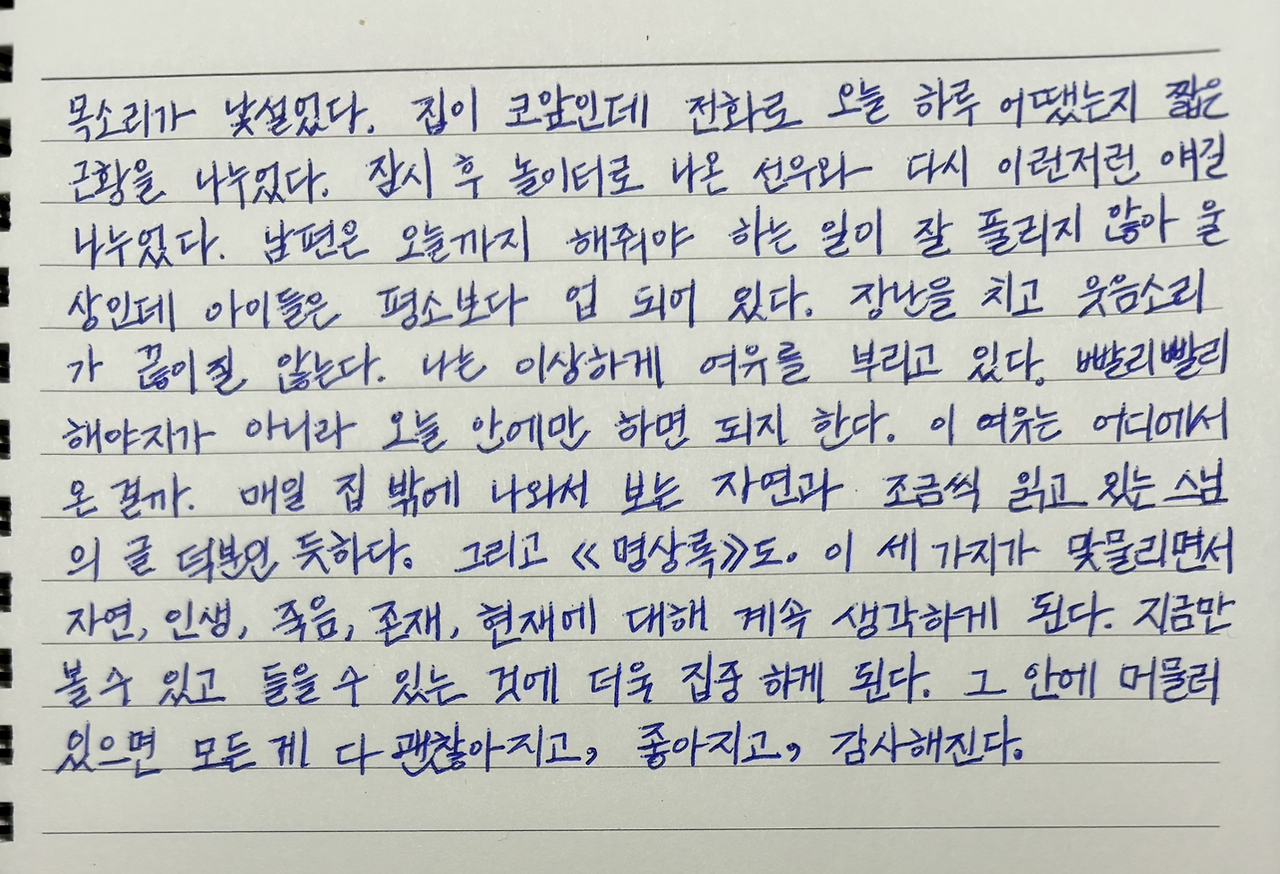 목소리가 낯설었다. 집이 코앞인데 전화로 오늘 하루 어땠는지 짧은
근황을 나누었다. 잠시 후 놀이터로 나온 선우와 다시 이런저런 얘길
나누었다. 남편은 오늘까지 해줘야 하는 일이 잘 풀리지 않아 울
상인데 아이들은 평소보다 업 되어 있다. 장난을 치고 웃음소리
가 끊이질 않는다. 나는 이상하게 여유를 부리고 있다. 빨리빨리
해야지가 아니라 오늘 안에만 하면 되지 한다. 이 여유는 어디에서
온 걸까. 매일 집 밖에 나와서 보는 자연과 조금씩 읽고 있는 스님
의 글 덕분인 듯하다. 그리고 《명상록》도. 이 세 가지가 맞물리면서
자연, 인생, 죽음, 존재, 현재에 대해 계속 생각하게 된다. 지금만
볼 수 있고 들을 수 있는 것에 더욱 집중 하게 된다. 그 안에 머물러
있으면 모든 게 다 괜찮아지고, 좋아지고, 감사해진다.